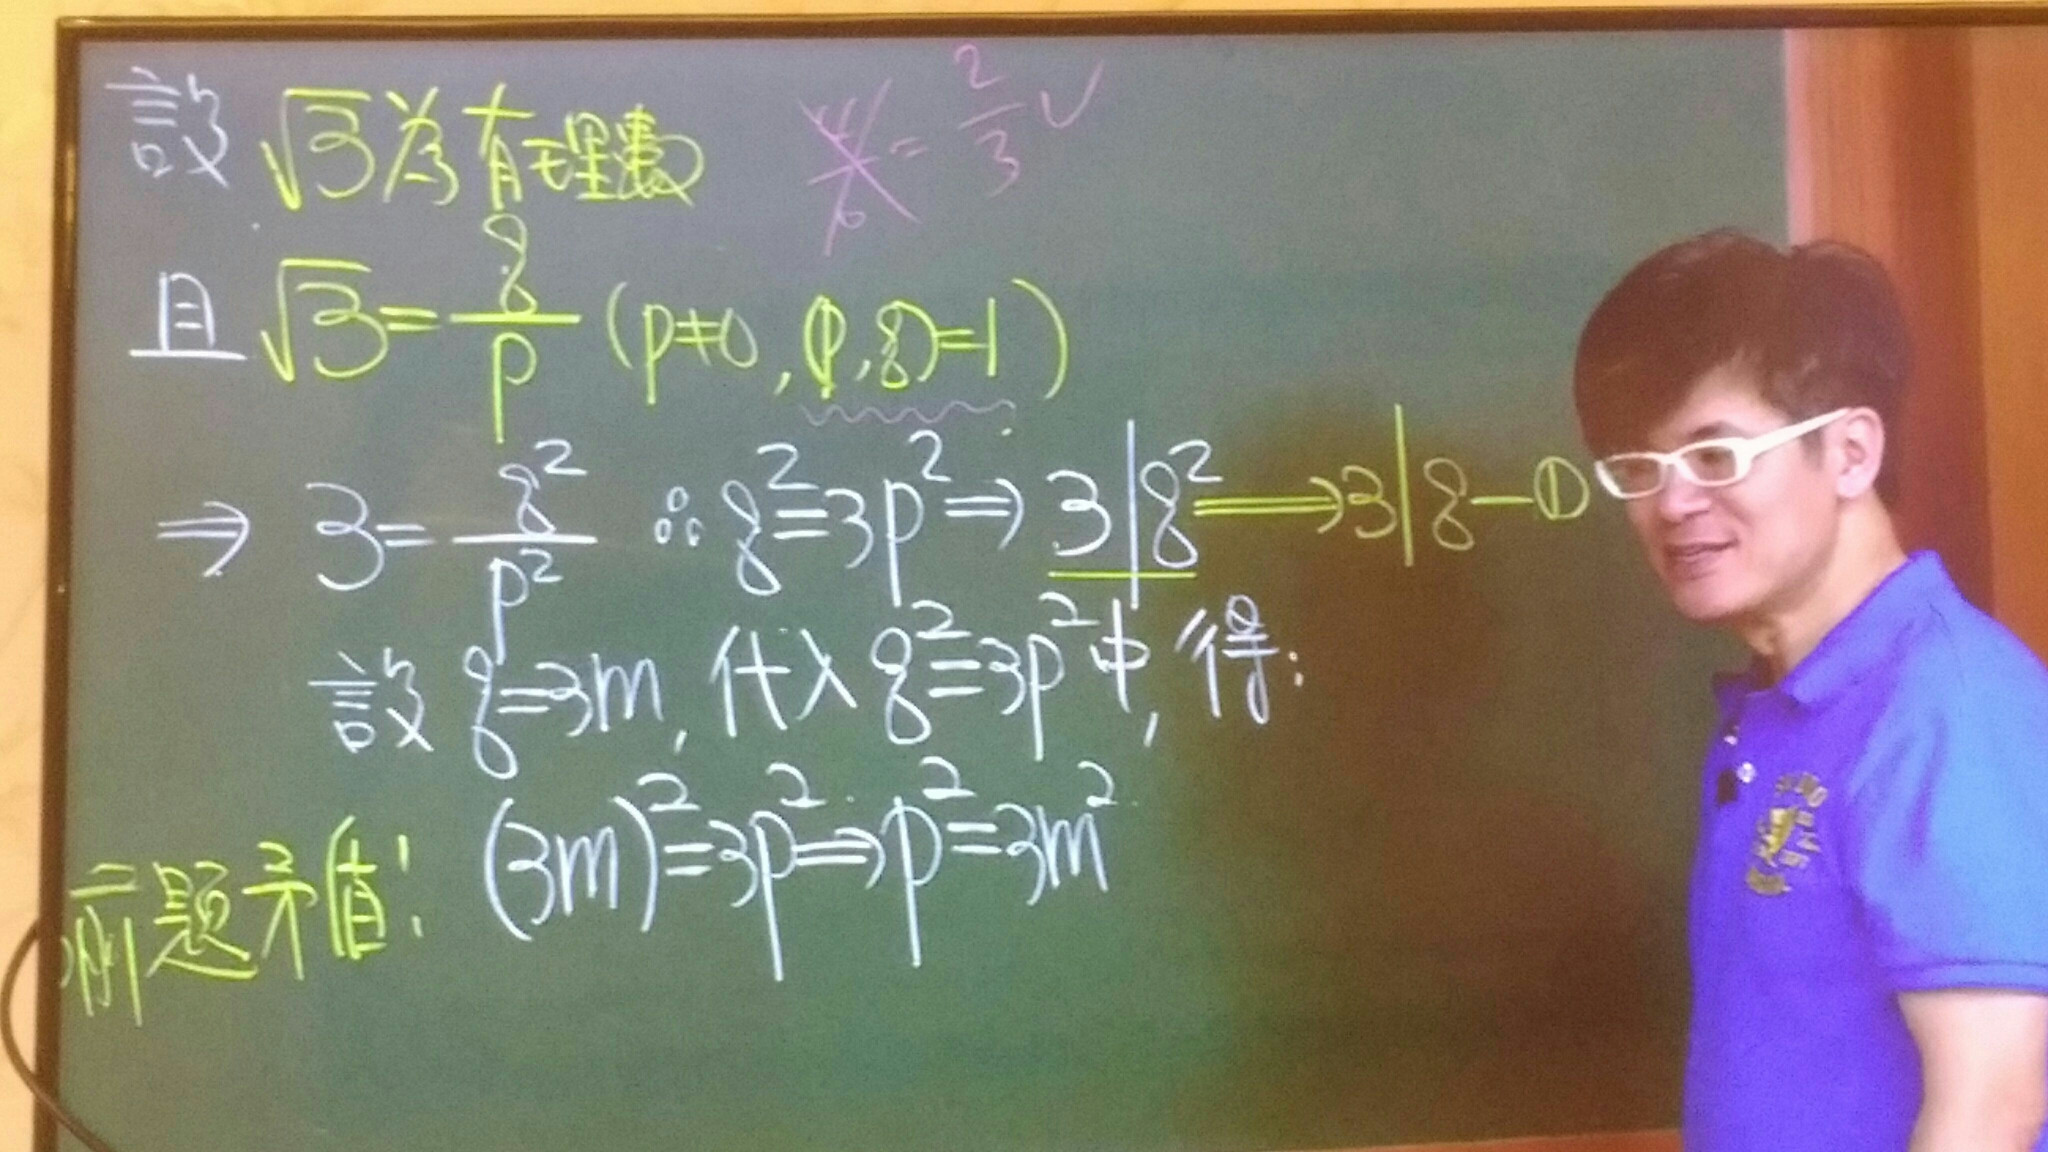 設√3為有理數 4/6=2/3✓
且√3=q/p (p≠0,(p,q)=1)
⇒ 3=q²/p² ∴q²=3p²⇒3|q²⟹3|q—①
設q=3m,代入q²=3p²中,得:
(3m)²=3p²⇒p²=3m²
前題矛盾!